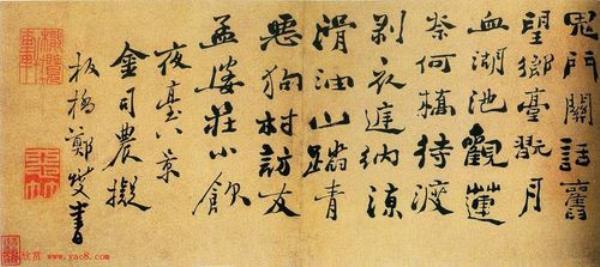 鬼門關話舊
望鄉臺翫月
血湖池觀蓮
奈何橋待渡
剥衣庭納涼
滑油山踏青
惡狗村訪友
孟婆莊小飲
夜臺八景
金司農擬
板橋鄭燮書
欣赏 www.yac8.com